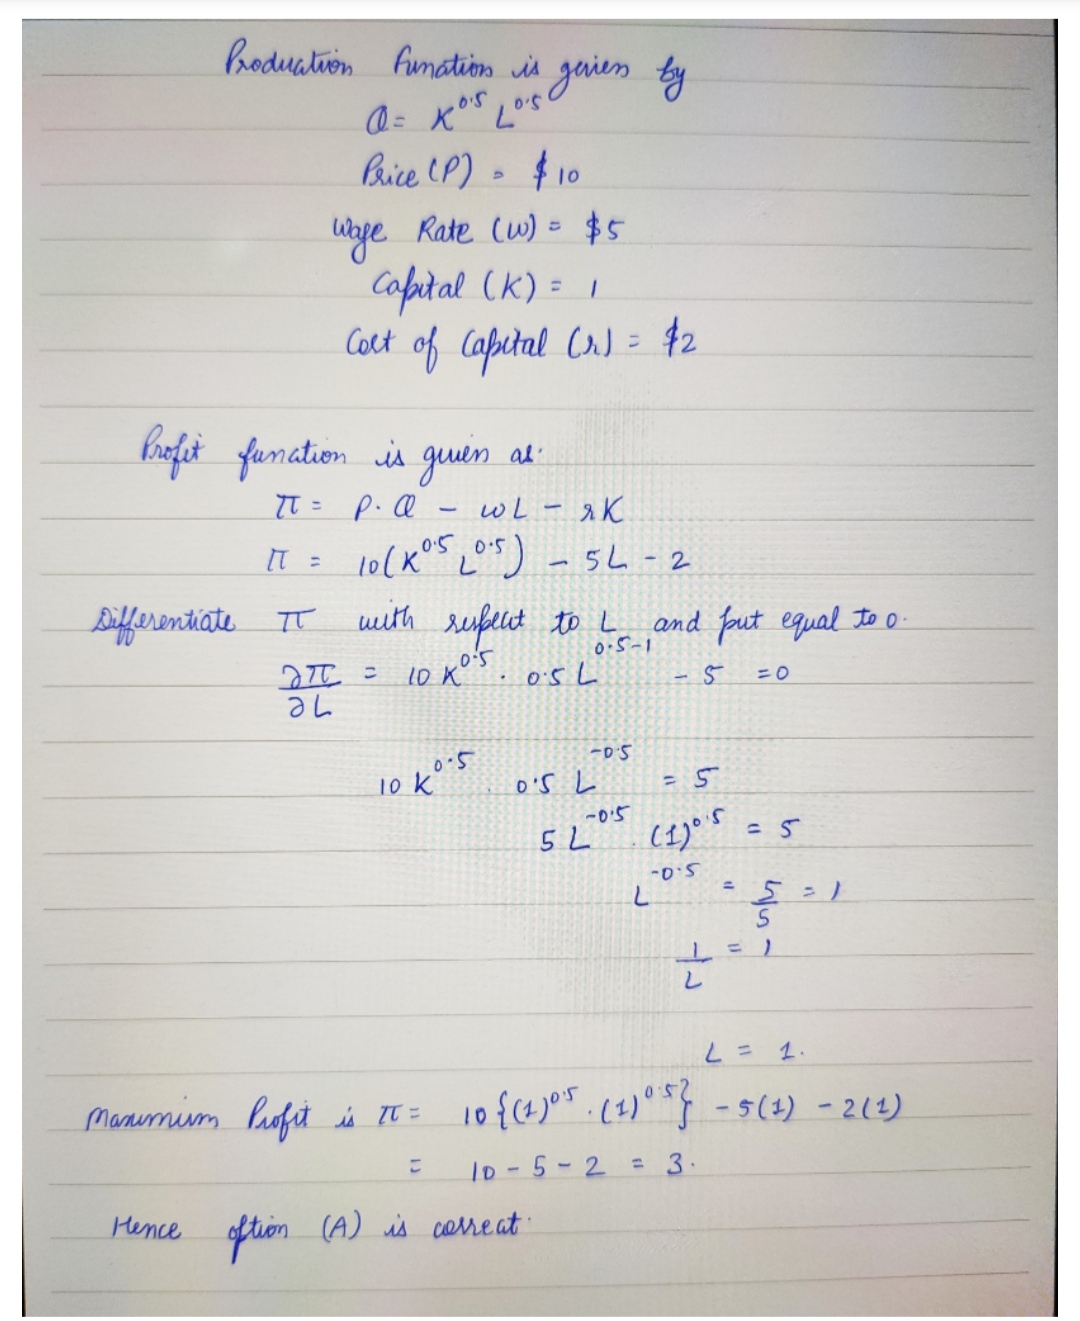 Production function is given by
Q = K^0.5 L^0.5
Price (P) = $10
Wage Rate (w) = $5
Capital (K) = 1
Cost of Capital (r) = $2
Profit function is given as:
π = P.Q - wL - rK
π = 10(K^0.5 L^0.5) - 5L - 2
Differentiate π with respect to L and put equal to 0.
∂π/∂L = 10 K^0.5 . 0.5 L^0.5-1 - 5 = 0
10 K^0.5 . 0.5 L^-0.5 = 5
5 L^-0.5 . (1)^0.5 = 5
L^-0.5 = 5/5 = 1
1/L = 1
L = 1.
Maximum Profit is π = 10{(1)^0.5 . (1)^0.5} - 5(1) - 2(1)
= 10 - 5 - 2 = 3.
Hence option (A) is correct.